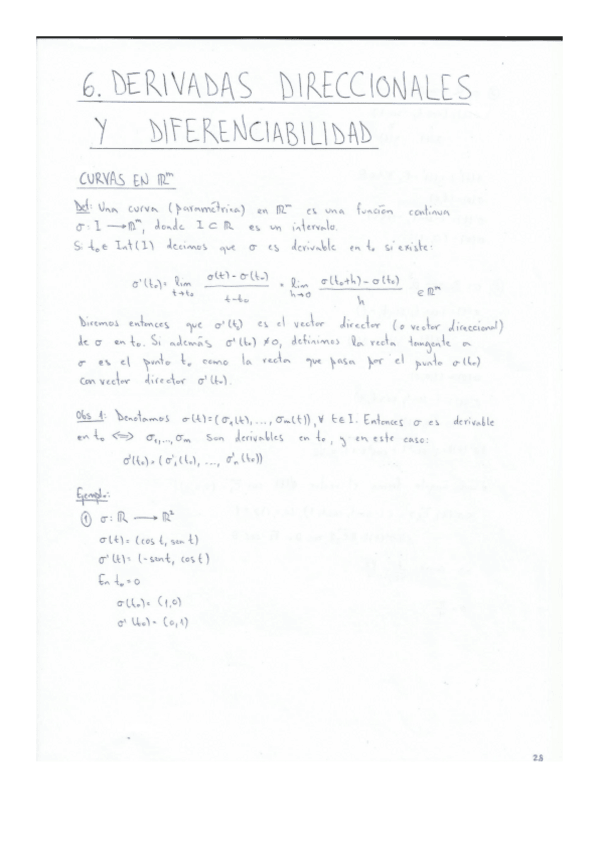 6. DERIVADAS DIRECCIONALES
Y DIFERENCIABILIDAD
CURVAS EN ℝᵐ
Def: Una curva (paramétrica) en ℝᵐ es una función continua
σ: I → ℝᵐ, donde I ⊂ ℝ es un intervalo.
Si t₀ ∈ Int(I) decimos que σ es derivable en t₀ si existe:
σ'(t₀) = lim_{t→t₀} (σ(t) - σ(t₀))/(t - t₀) = lim_{h→0} (σ(t₀+h) - σ(t₀))/h ∈ ℝᵐ
Diremos entonces que σ'(t₀) es el vector director (o vector direccional)
de σ en t₀. Si además σ'(t₀) ≠ 0, definimos la recta tangente a
σ es el punto t₀ como la recta que pasa por el punto σ(t₀)
con vector director σ'(t₀).
Obs 1: Denotamos σ(t) = (σ₁(t), ..., σm(t)), ∀ t ∈ I. Entonces σ es derivable
en t₀ ⟺ σ₁, ..., σm son derivables en t₀, y en este caso:
σ'(t₀) = (σ'₁(t₀), ..., σ'm(t₀))
Ejemplo:
① σ: ℝ → ℝ²
σ(t) = (cos t, sen t)
σ'(t) = (-sen t, cos t)
En t₀ = 0
σ(t₀) = (1,0)
σ'(t₀) = (0,1)
28